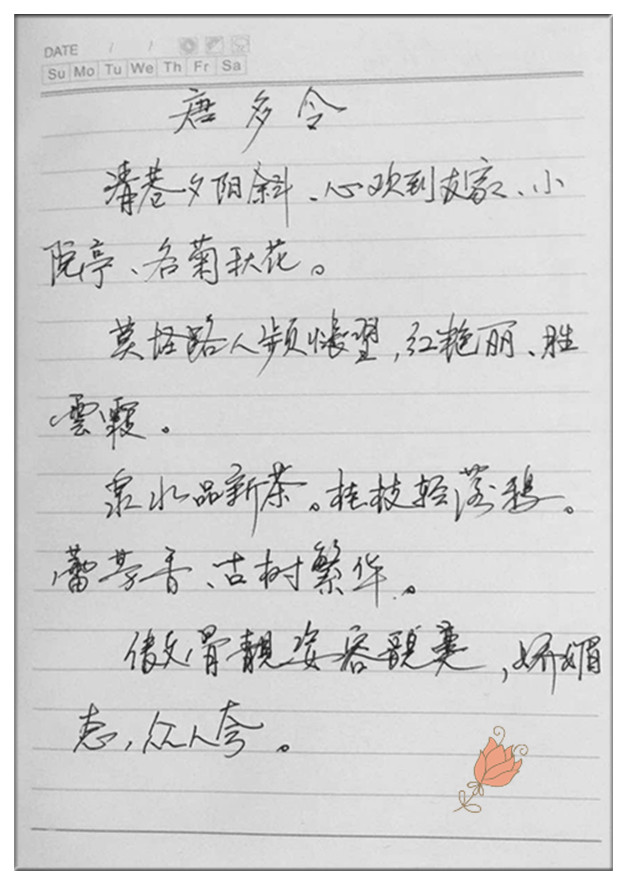 DATE / /
Su Mo Tu We Th Fr Sa
唐多令
清巷夕阳斜、心欢到友家、小
院亭、名菊秋花。
莫怪路人频怅望,红艳丽、胜
雲霞。
泉水品新茶。桂枝轻落鸦。
蕾芳香、古树繁华。
傲骨靓姿容,娇媚
态,众人夸。